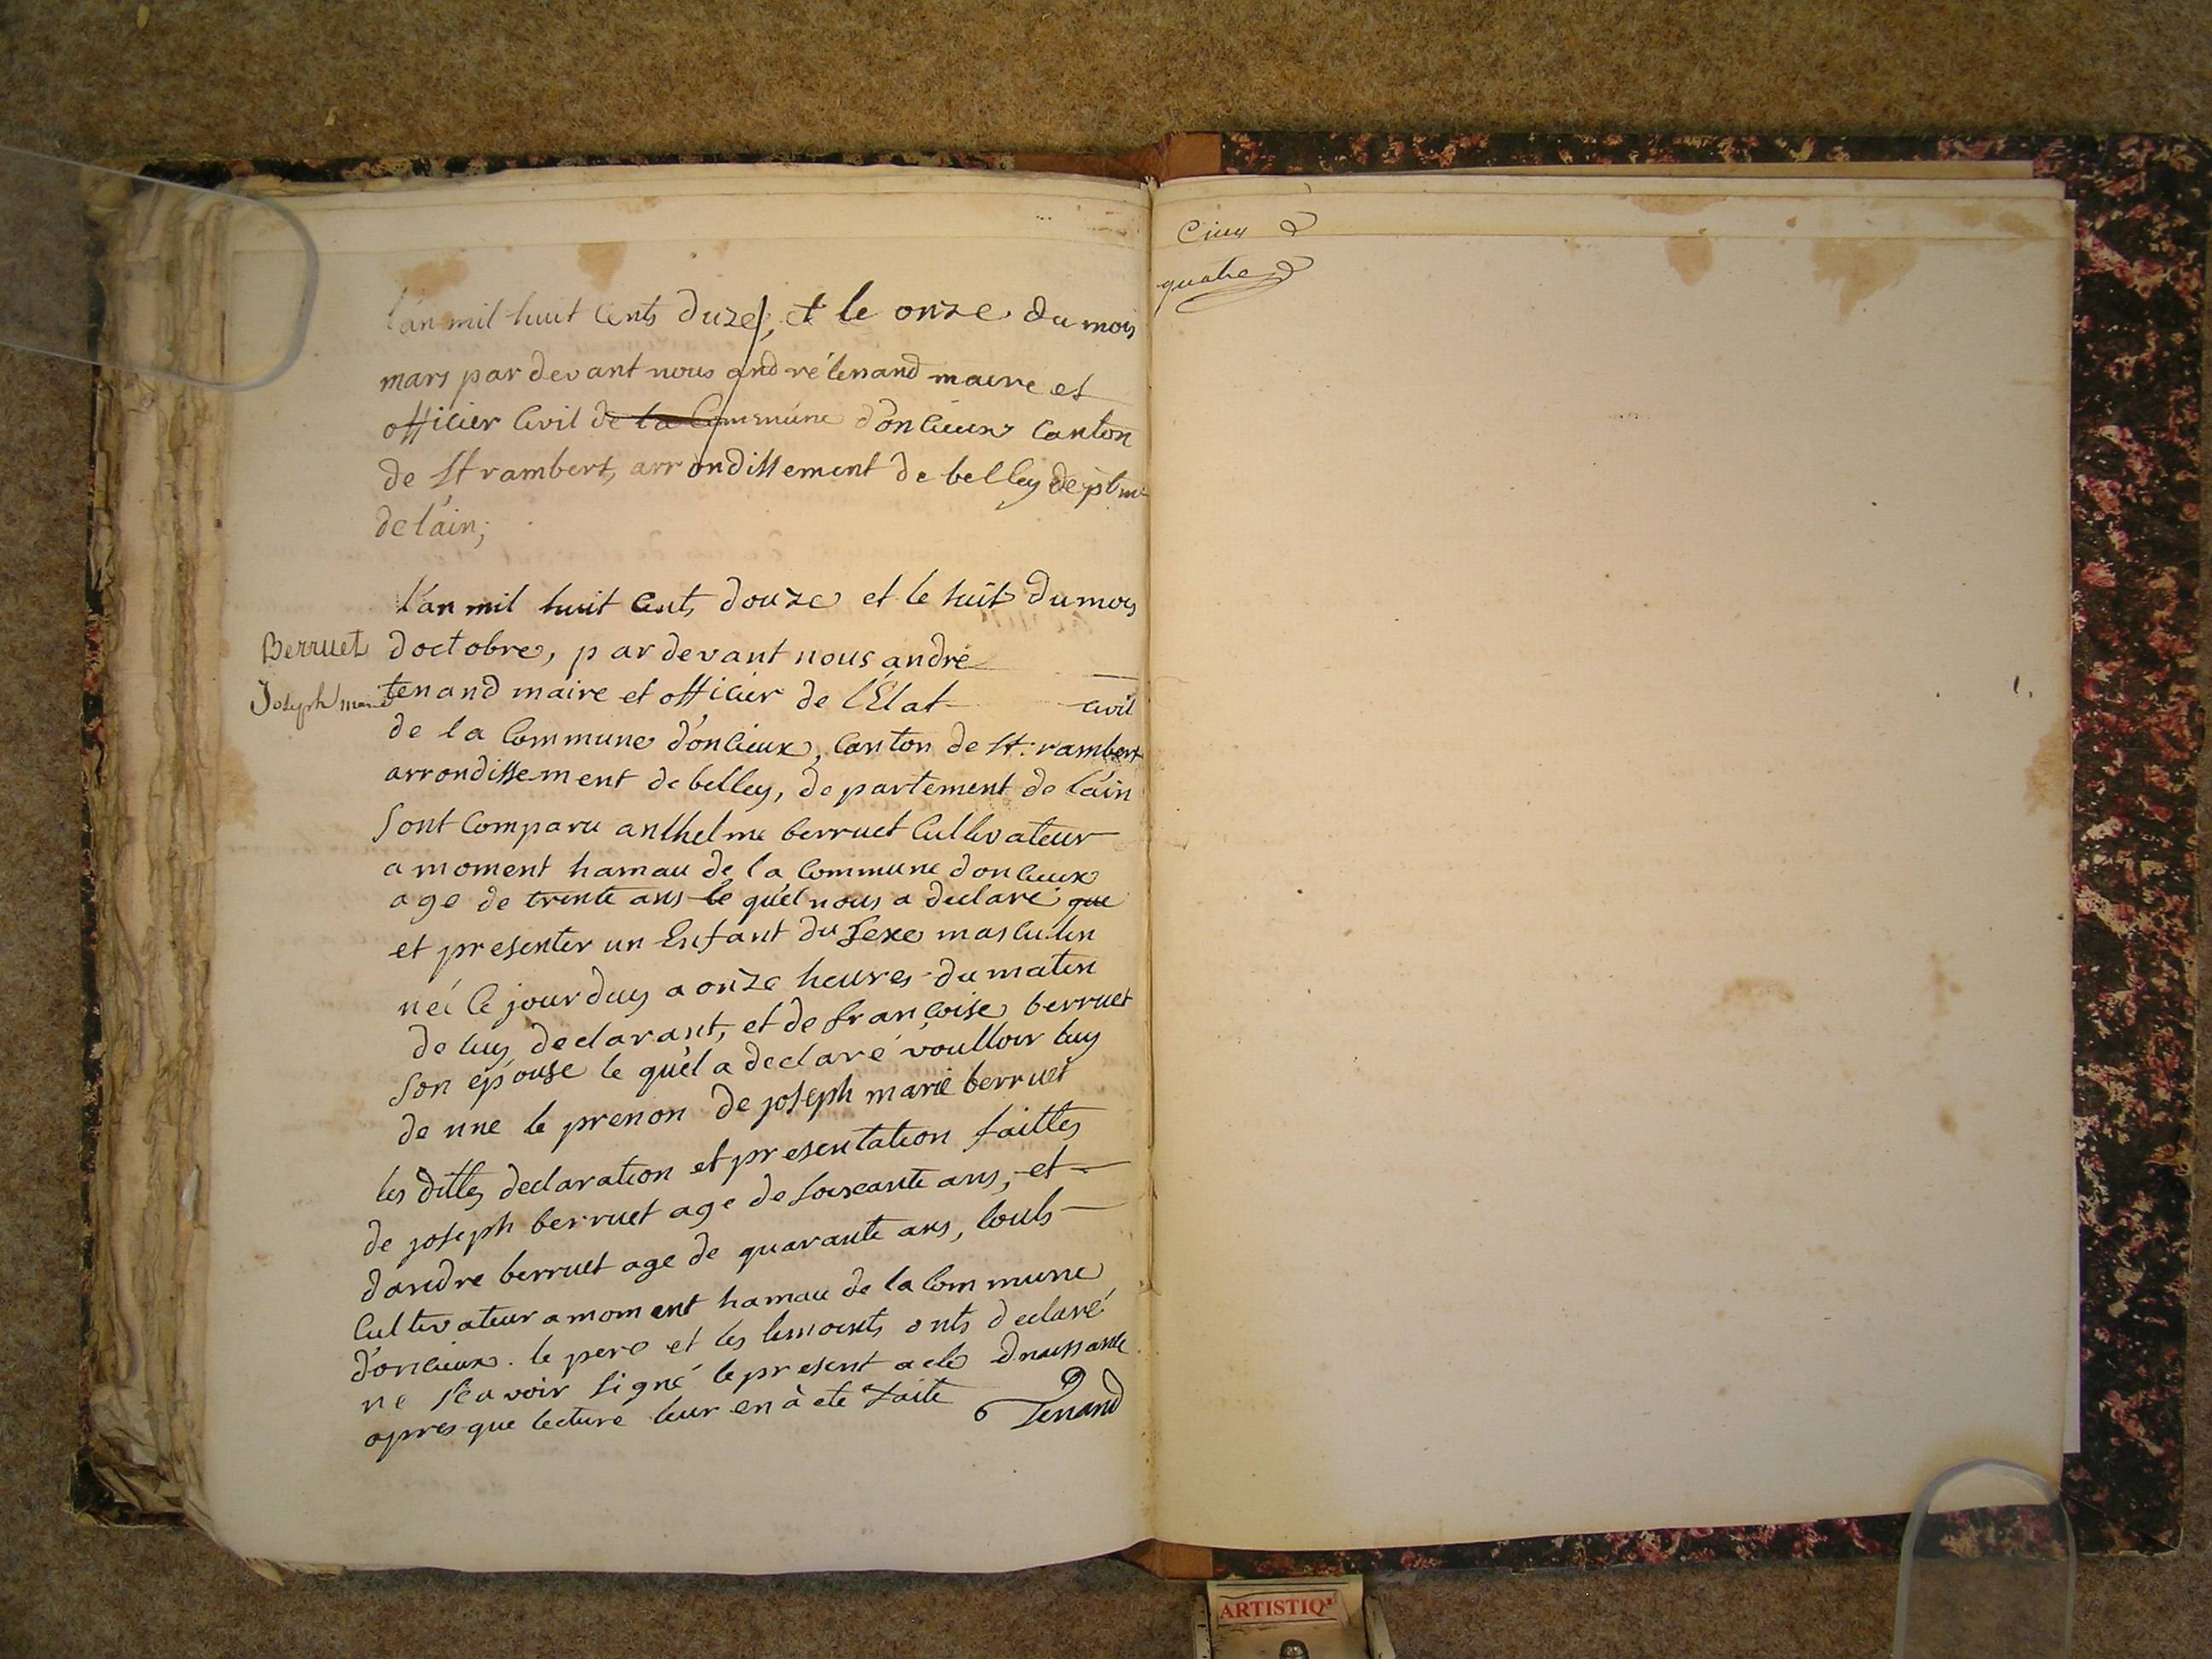 l'an mil huit Cents duze, et le onze du mois
mars par devant nous andré tenand maire et
officier Civil de la Commune d'onlieux Canton
de St rambert, arrondissement de belley deptm
de l'ain;
l'an mil huit Cents douze et le huit du mois
Berruet
d'octobre, par devant nous andré
Joseph marie
tenand maire et officier de l'État civil
de la Commune d'onlieux, Canton de St. rambert
arrondissement de belley, departement de l'ain
Sont Comparu anthelme berruet Cultivateur
a moment hamau de la Commune d'onlieux
age de trente ans le quel nous a declaré que
et presenter un Enfant du Sexe masculin
néé le jourduy a onze heures du matin
de luy declarant, et de françoise berruet
Son épouse le quel a declaré voulloir luy
de nne le prenon de joseph marie berruet
les dittes declaration et presentation faittes
de joseph berruet age de Soixante ans, et
d'andre berruet age de quarante ans, touts
Cultivateur a moment hamau de la Commune
d'onlieux. le pere et les temoints onts declaré
ne Sçavoir Signé le present acte dnaissance
apres que lecture leur en à ete faite Tenand
Cinq
quatre
ARTISTIQ